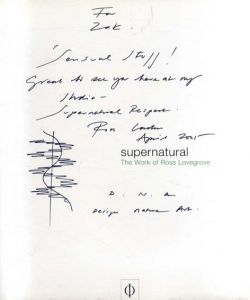 For
Zak.
'Sensual Stuff!
Great to see you here at my
Studio -
Supernatural Respect.
Ross
April 2005
supernatural
The Work of Ross Lovegrove
D. N. A
Design Nature Art.